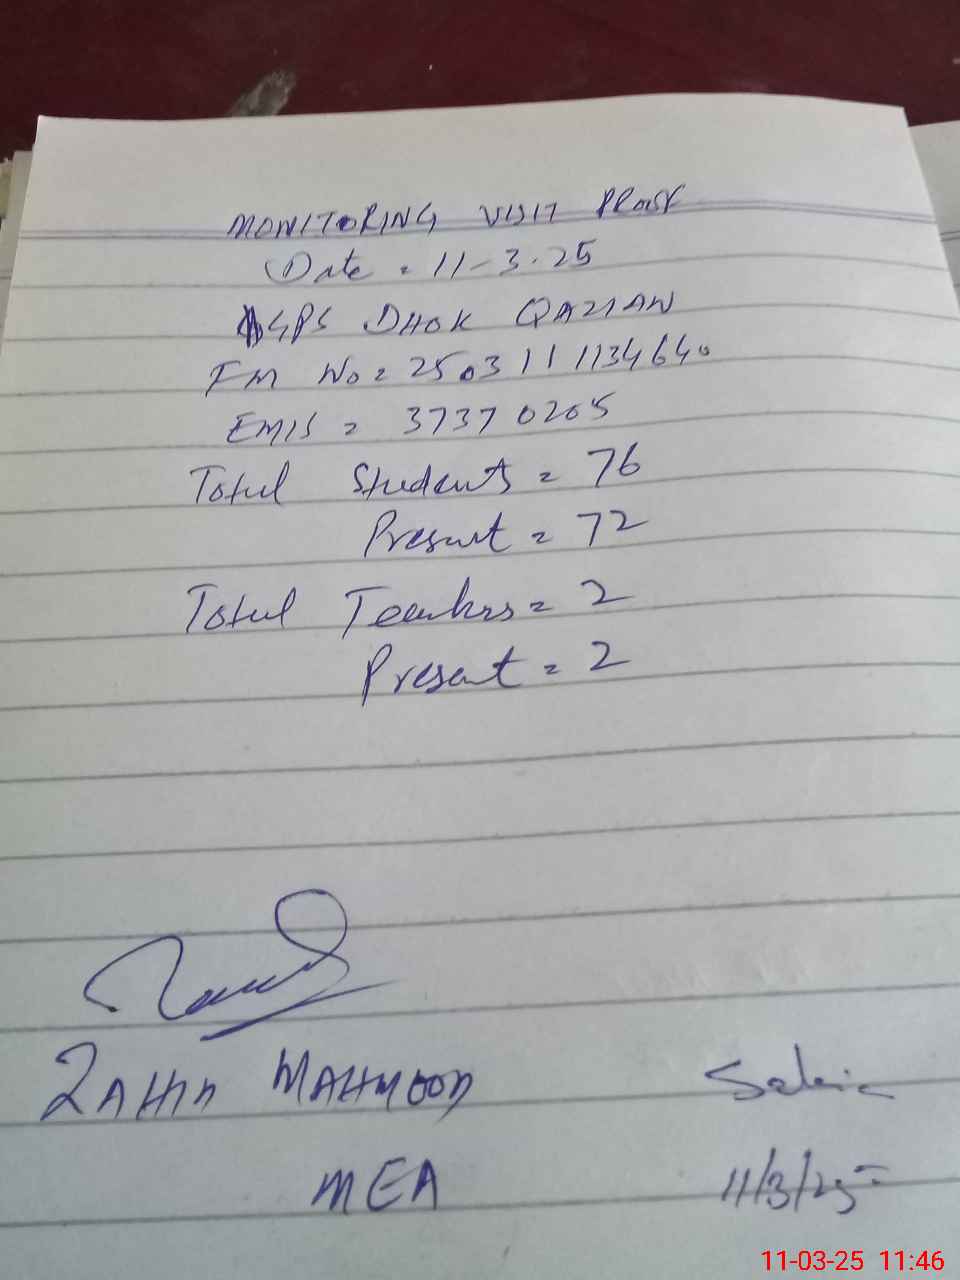 MONITORING VISIT PROOF
Date = 11-3-25
GPS DHOK QAZIAN
FM No = 2503111134640
EMIS = 37370205
Total Students = 76
Present = 72
Total Teachers = 2
Present = 2
MAHMOOD
MEA
11/3/25
11-03-25 11:46